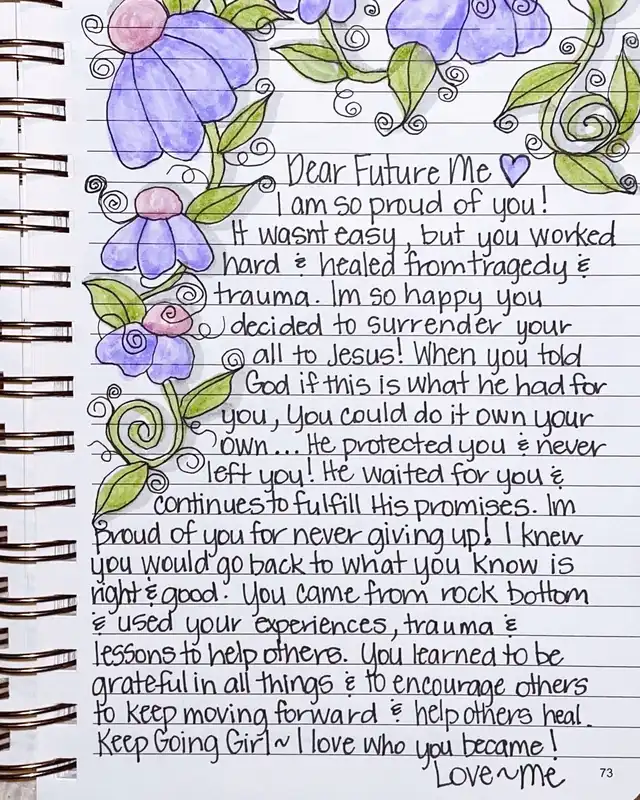 Dear Future Me
I am so proud of you!
It wasnt easy, but you worked
hard & healed from tragedy &
trauma. Im so happy you
decided to surrender your
all to Jesus! When you told
God if this is what he had for
you, You could do it own your
own... He protected you & never
left you! He waited for you &
continues to fulfill His promises. Im
proud of you for never giving up! I knew
you would go back to what you know is
right & good. You came from rock bottom
& used your experiences, trauma &
lessons to help others. You learned to be
grateful in all things & to encourage others
to keep moving forward & help others heal.
Keep Going Girl ~ I love who you became!
Love ~ Me
73